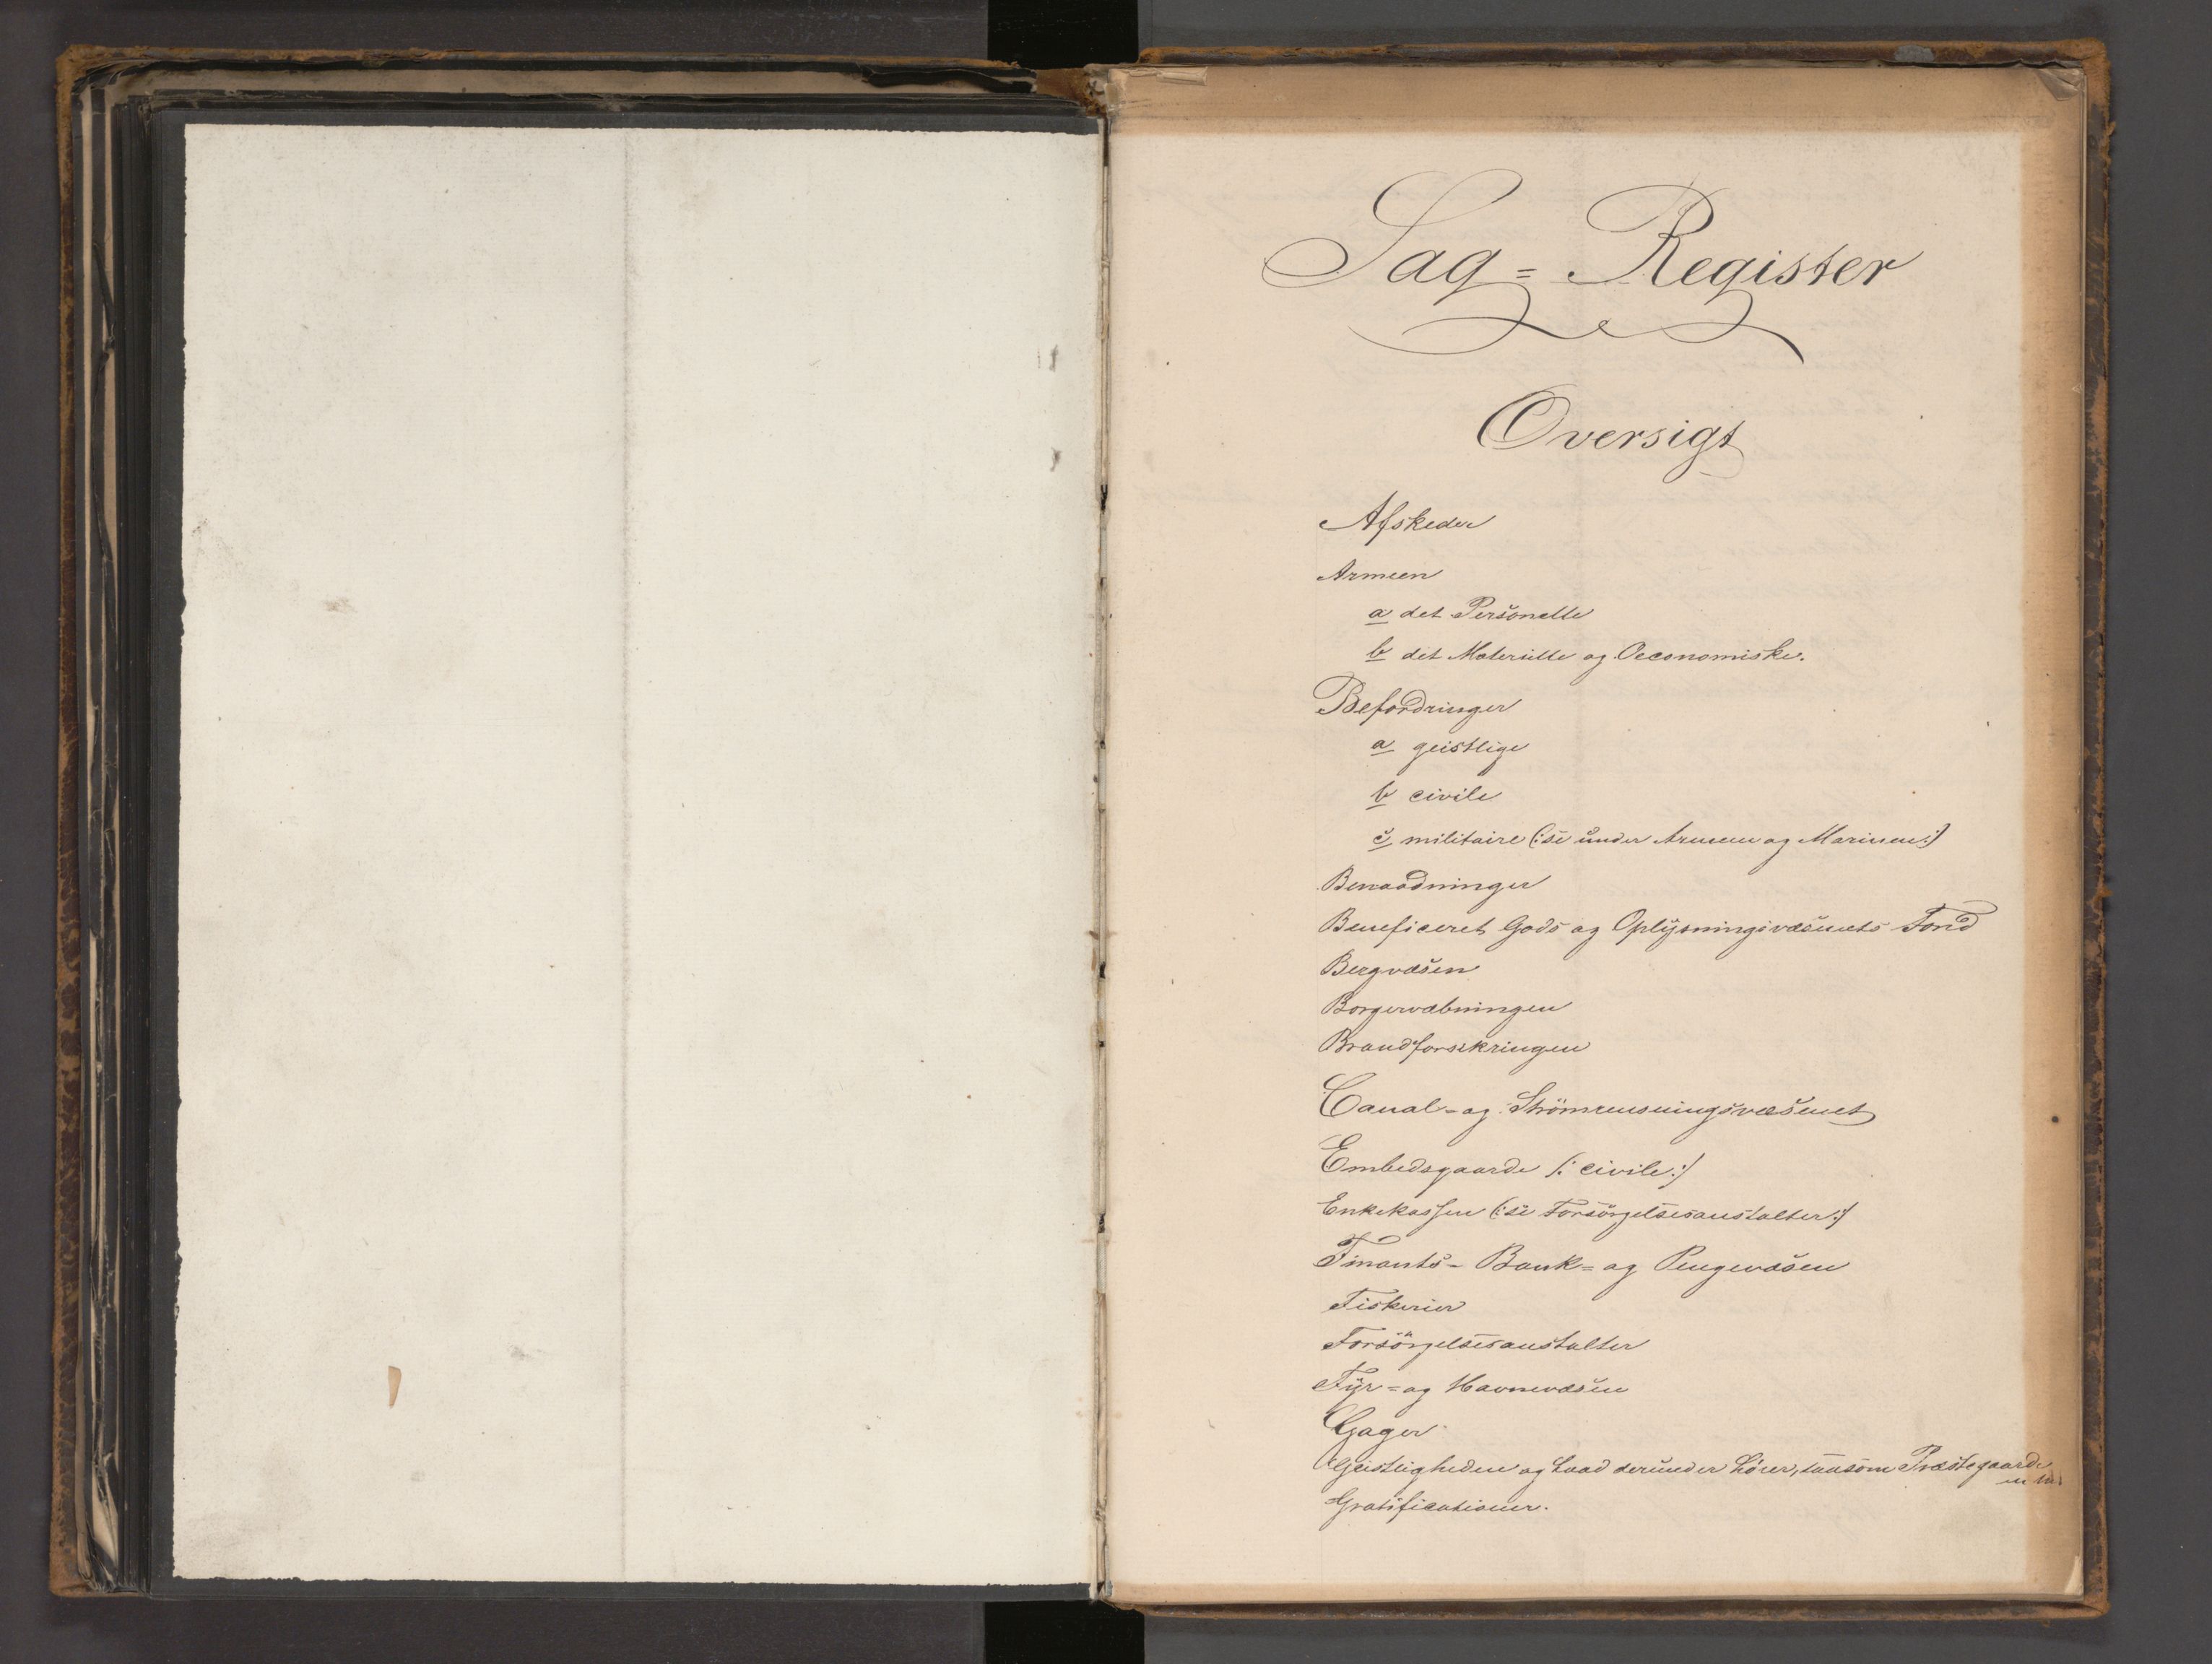 Sag=Register
Oversigt
Afskeder
Armeen
a det Personelle
b det Materielle og Oeconomiske.
Befordringer
a geistlige
b civile
c militaire (: se under Armeen og Marinen :)
Benaadninger
Beneficeret Gods og Oplysningsvæsenets Fond
Bergvæsen
Borgervæbningen
Brandforsikringen
Canal- og Strömrensningsvæsenet
Embedsgaarde /: civile :/
Enkekassen (: se Forsörgelsesanstalter :/
Finants- Bank= og Pengevæsen
Fiskerier
Forsörgelsesanstalter
Fyr= og Havnevæsen
Gager
Geistligheden og hvad derunder hörer, saasom Præstegaarde
m m
Gratificationer.